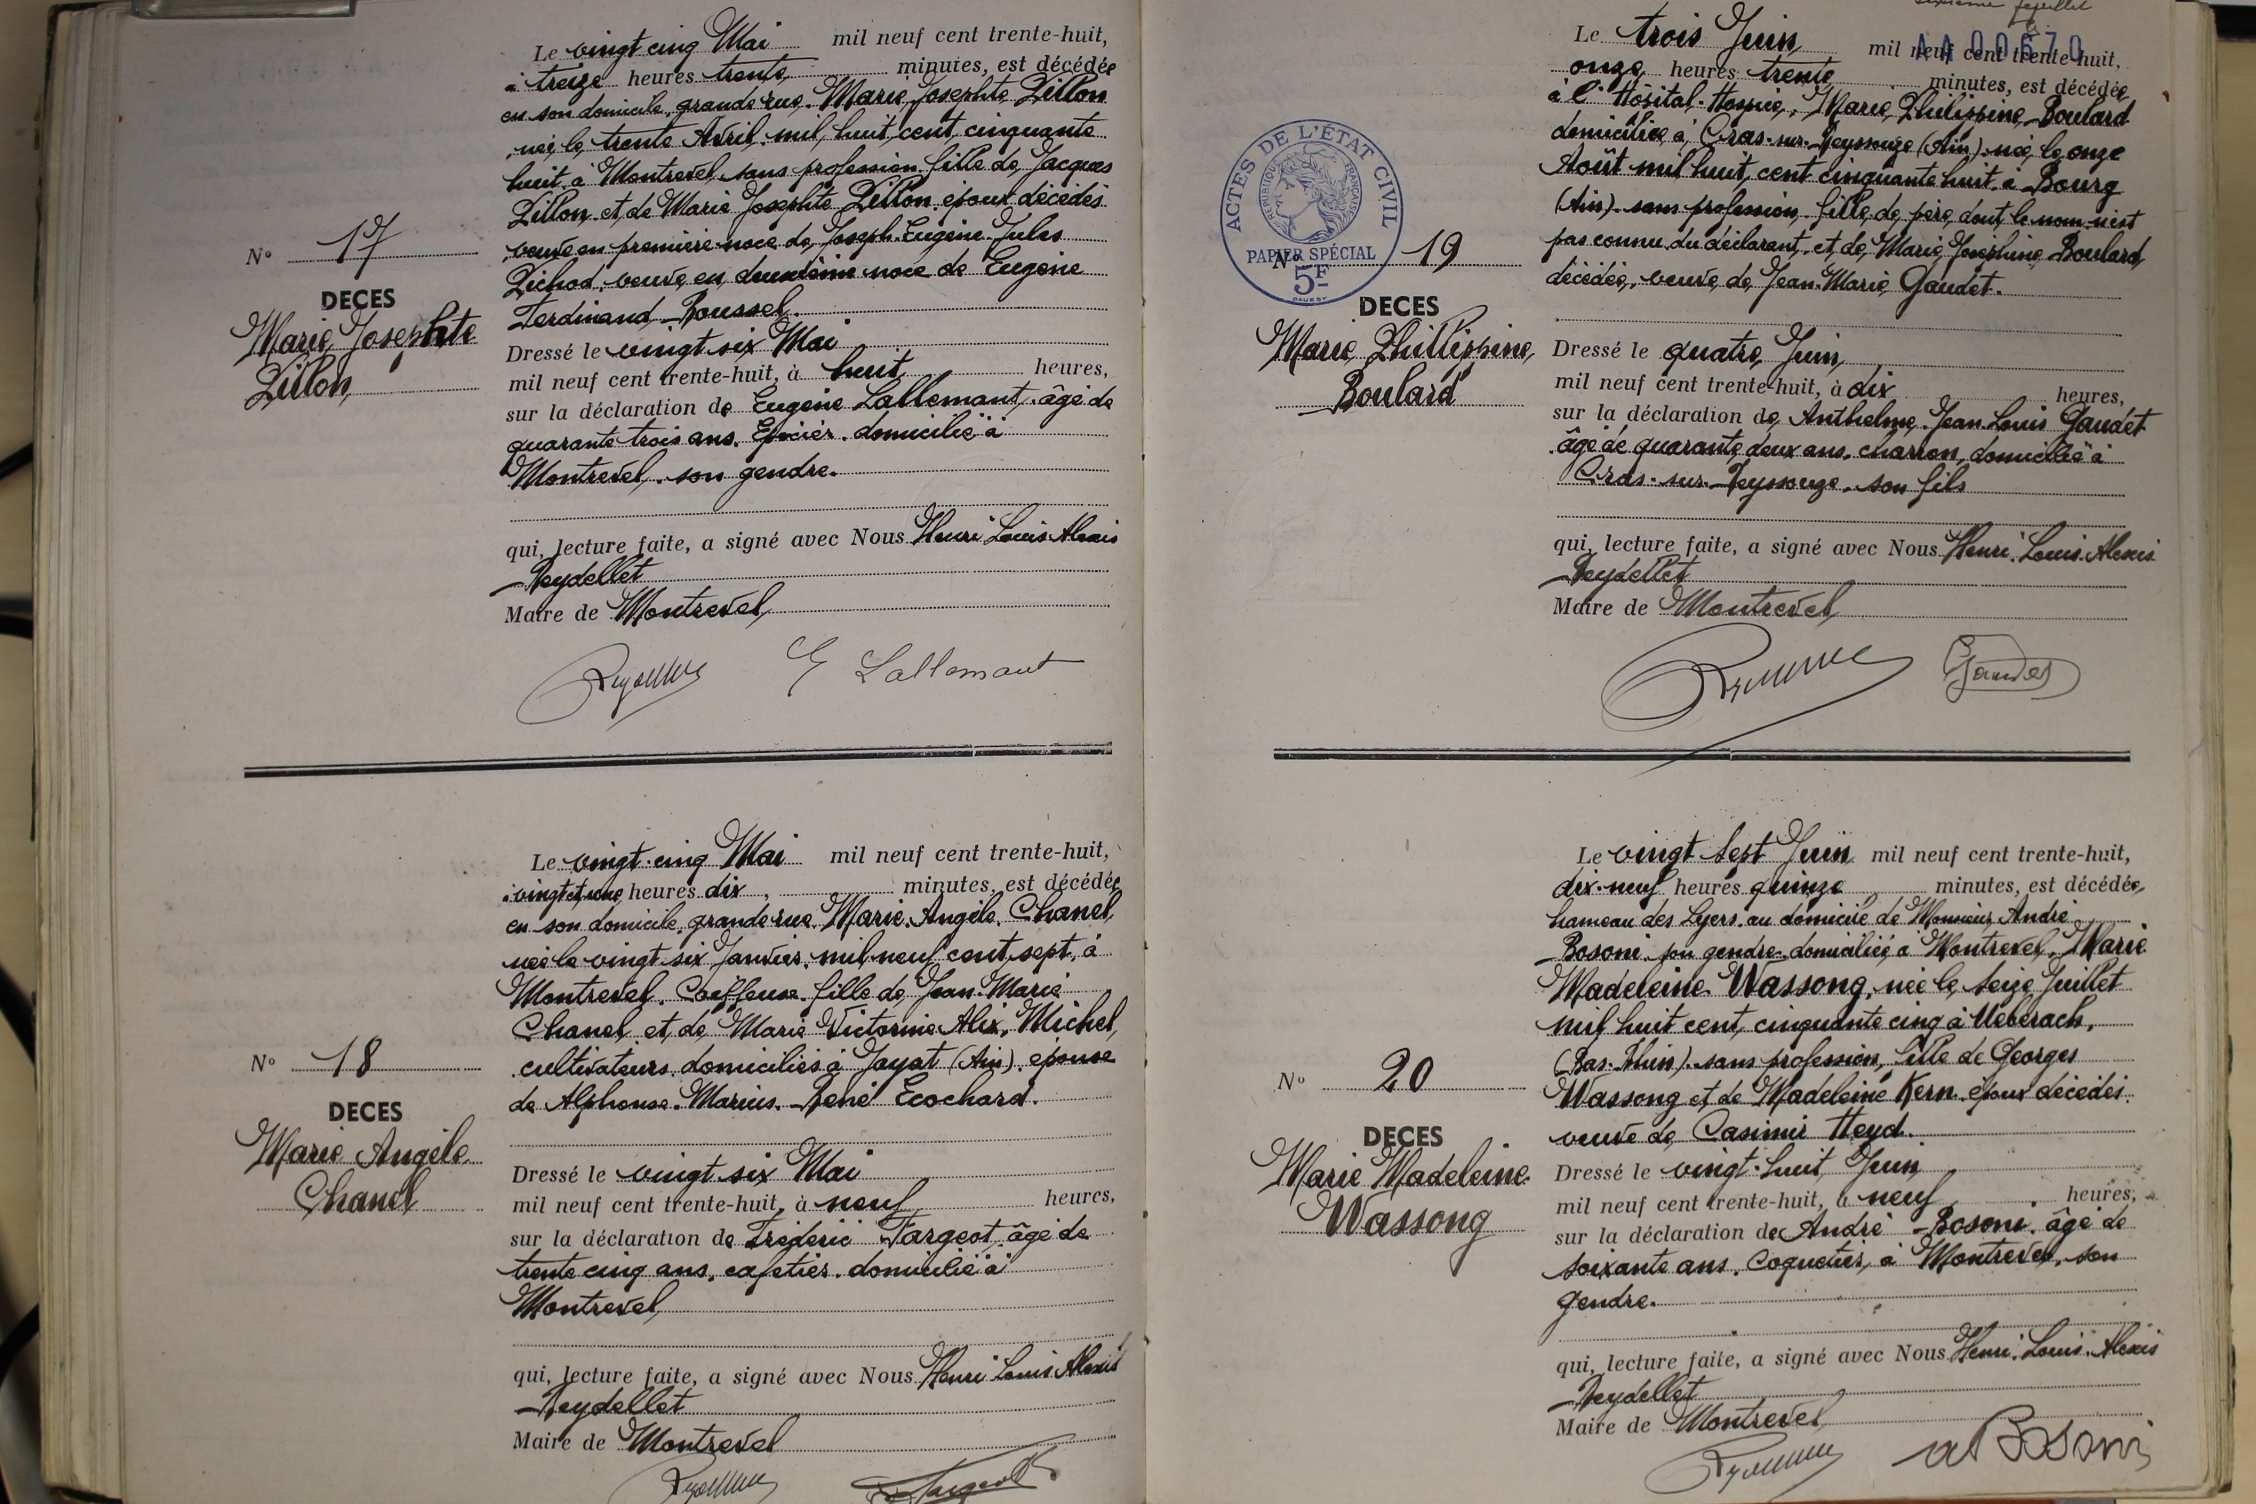 Le vingt cinq Mai mil neuf cent trente-huit,
à treize heures trente minutes, est décédée
en son domicile, grande rue, Marie Josephte Pillon
née le trente Avril mil huit cent cinquante
huit à Montrevel, sans profession fille de Jacques
Pillon et de Marie Josephte Pillon époux décédés
veuve en première noce de Joseph Eugène Jules
Pichod, veuve en deuxième noce de Eugène
Ferdinand Roussel.
N° 17
DECES
Marie Josephte
Pillon
Dressé le vingt six Mai
mil neuf cent trente-huit, à huit heures,
sur la déclaration de Eugène Lallemant, âgé de
quarante trois ans, Epicier, domicilié à
Montrevel, son gendre.
qui, lecture faite, a signé avec Nous Henri Louis Alexis
Reydellet
Maire de Montrevel
E Lallemant
Le vingt-cinq Mai mil neuf cent trente-huit,
à vingt et une heures dix minutes, est décédée
en son domicile, grande rue, Marie Angèle Chanel
née le vingt six Janvier mil neuf cent sept, à
Montrevel, Coiffeuse, fille de Jean-Marie
Chanel et de Marie Victorine Alix Michel,
cultivateurs domiciliés à Jayat (Ain), épouse
de Alphonse Marius René Ecochard.
N° 18
DECES
Marie Angèle
Chanel
Dressé le vingt six Mai
mil neuf cent trente-huit, à neuf heures,
sur la déclaration de Fréderic Fargeot, âgé de
trente cinq ans, cafetier, domicilié à
Montrevel
qui, lecture faite, a signé avec Nous Henri Louis Alexis
Reydellet
Maire de Montrevel
Fargeot
feuillet
AA00670
Le trois Juin mil neuf cent trente-huit,
onze heures trente minutes, est décédée
à l'Hôpital-Hospice, Marie Philippine Boulard
domiciliée à Cras-sur-Reyssouze (Ain) née le onze
Août mil huit cent cinquante huit à Bourg
(Ain) sans profession, fille de père dont le nom n'est
pas connu du déclarant, et de Marie Josephine Boulard
décédée, veuve de Jean-Marie Gaudet.
ACTES DE L'ÉTAT CIVIL
RÉPUBLIQUE FRANÇAISE
PAPIER SPÉCIAL
5F
N° 19
DECES
Marie Phillippine
Boulard
Dressé le quatre Juin
mil neuf cent trente-huit, à dix heures,
sur la déclaration de Anthelme Jean Louis Gaudet
âgé de quarante deux ans, charron, domicilié à
Cras-sur-Reyssouze, son fils
qui, lecture faite, a signé avec Nous Henri Louis Alexis
Reydellet
Maire de Montrevel
Gaudet
Le vingt sept Juin mil neuf cent trente-huit,
dix-neuf heures quinze minutes, est décédée,
hameau des Lyers au domicile de Monsieur André
Bosoni son gendre, domiciliée à Montrevel, Marie
Madeleine Wassong, née le seize Juillet
mil huit cent cinquante cinq à Ueberach,
(Bas-Rhin) sans profession, fille de Georges
Wassong et de Madeleine Kern époux décédés.
veuve de Casimir Heyd.
N° 20
DECES
Marie Madeleine
Wassong
Dressé le vingt-huit Juin
mil neuf cent trente-huit, à neuf heures,
sur la déclaration de André Bosoni, âgé de
soixante ans, Coquetier, à Montrevel, son
gendre.
qui, lecture faite, a signé avec Nous Henri Louis Alexis
Reydellet
Maire de Montrevel
a Bosoni